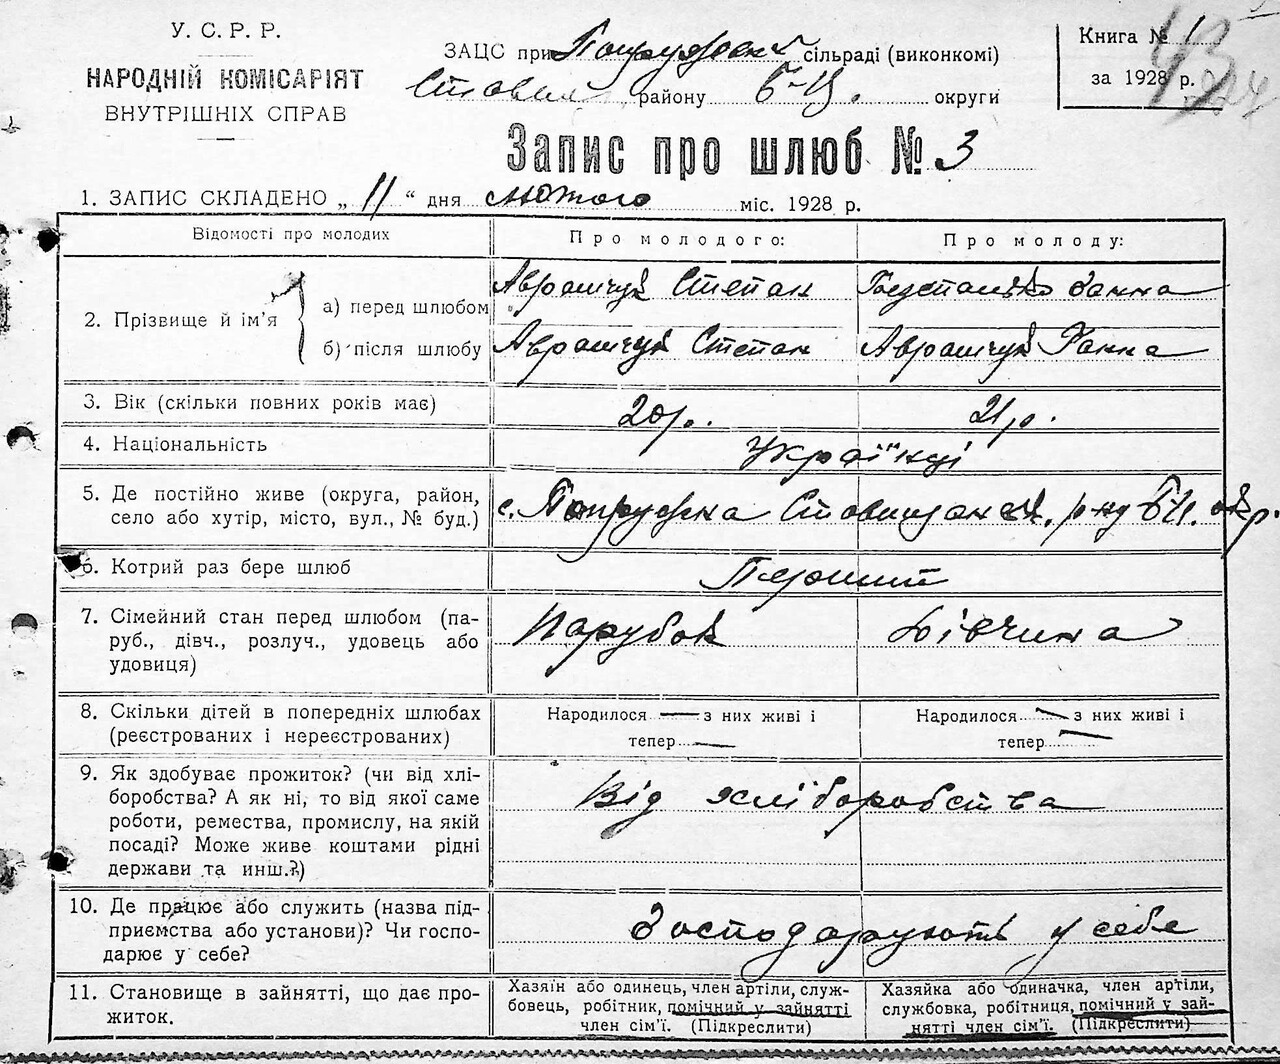 У. С. Р. Р.
НАРОДНІЙ КОМІСАРІЯТ
ВНУТРІШНІХ СПРАВ
ЗАЦС при Попружен. сільраді (виконкомі)
Ставищ. району Б-Ц. округи
Книга № 1
за 1928 р.
Запис про шлюб № 3
1. ЗАПИС СКЛАДЕНО „ 11 “ дня лютого міс. 1928 р.
Відомості про молодих
Про молодого:
Про молоду:
2. Прізвище й ім’я
а) перед шлюбом
Аврамчук Степан
Ганна
б) після шлюбу
Аврамчук Степан
Аврамчук Ганна
3. Вік (скільки повних років має)
20 р.
21 р.
4. Національність
Українці
5. Де постійно живе (округа, район,
село або хутір, місто, вул., № буд.)
с. Попружна Ставищанськ. р-ну БЦ. окр.
6. Котрий раз бере шлюб
Перший
7. Сімейний стан перед шлюбом (па-
руб., дівч., розлуч., удовець або
удовиця)
Парубок
Дівчина
8. Скільки дітей в попередніх шлюбах
(реєстрованих і нереєстрованих)
Народилося — з них живі і
тепер —
Народилося — з них живі і
тепер —
9. Як здобуває прожиток? (чи від хлі-
боробства? А як ні, то від якої саме
роботи, ремества, промислу, на якій
посаді? Може живе коштами рідні
держави та инш.?)
Від хліборобства
10. Де працює або служить (назва під-
приємства або установи)? Чи госпо-
дарює у себе?
Господарюють у себе
11. Становище в зайнятті, що дає про-
житок.
Хазяїн або одинець, член артіли, служ-
бовець, робітник, помічний у зайнятті
член сім’ї. (Підкреслити)
Хазяйка або одиначка, член артіли,
службовка, робітниця, помічний у зай-
нятті член сім’ї. (Підкреслити)